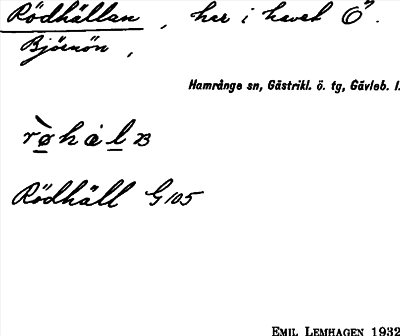 Rödhällan, her i havet Ö".
Björnön,
Hamrånge sn, Gästrikl. ö. tg, Gävleb. l.
Rödhäll G 105
EMIL LEMHAGEN 1932